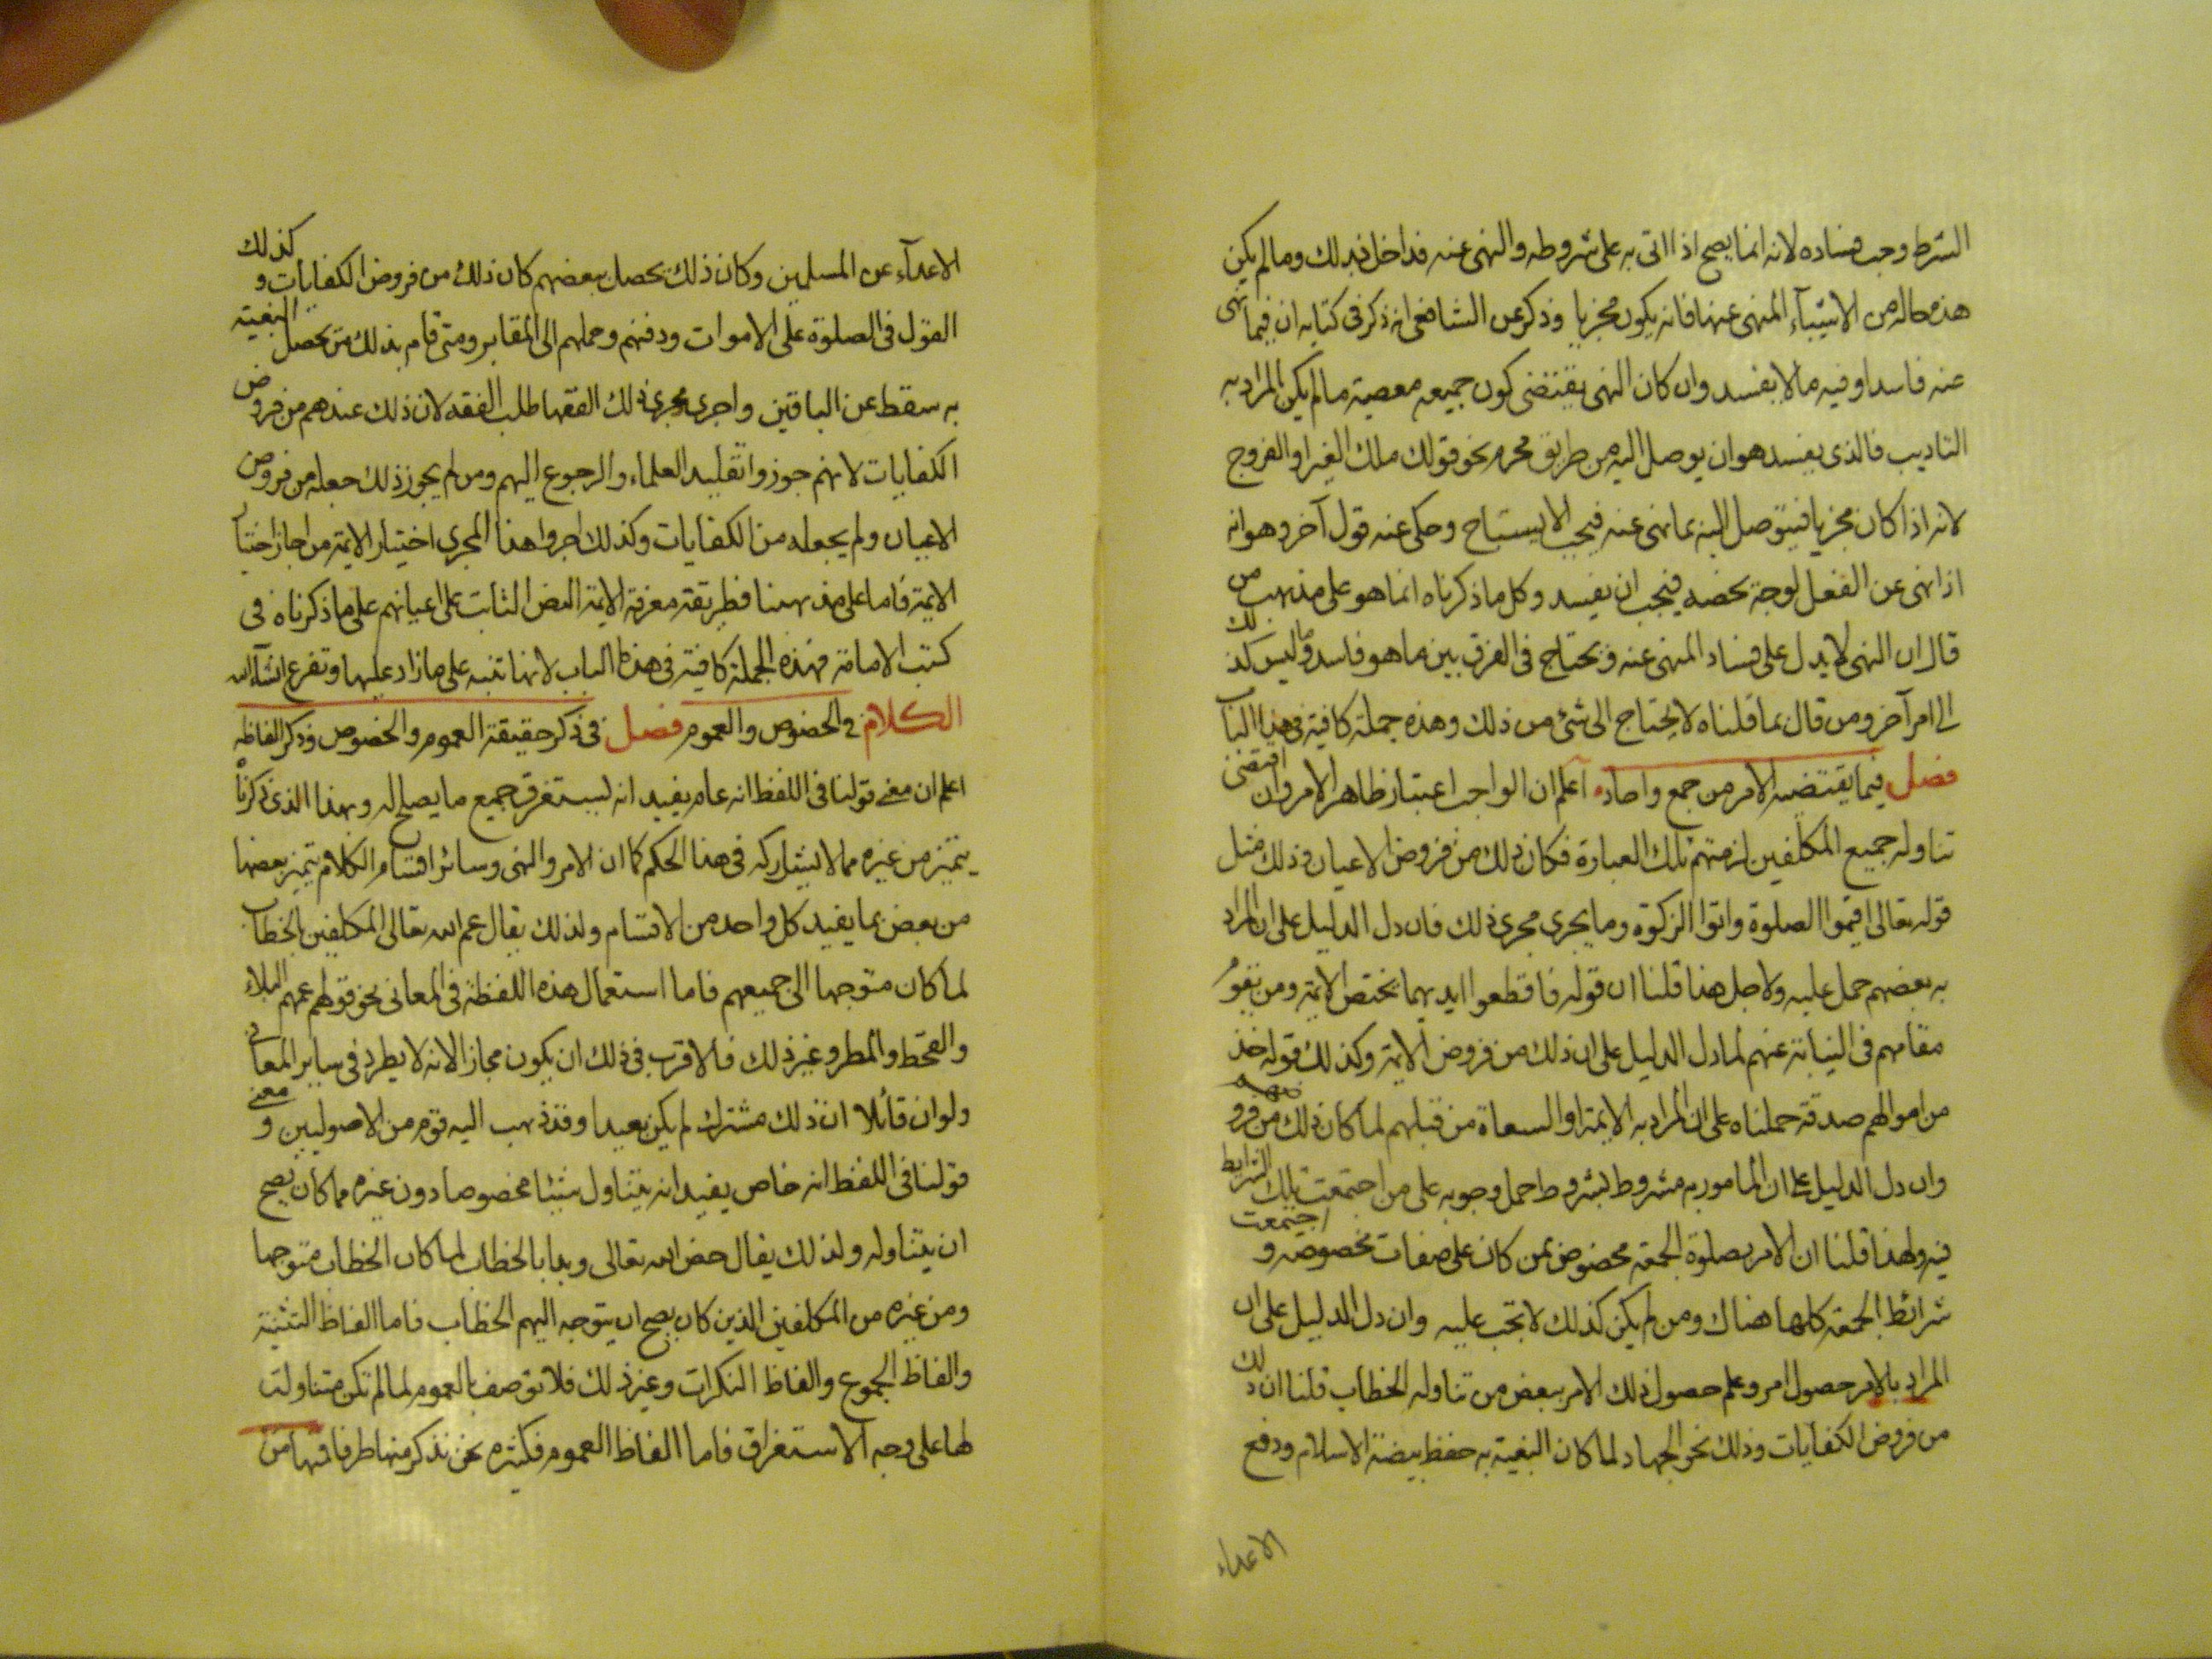 الشرط وجب فساده لانه انما يصح اذا اتى به على شروطه والنهى عنه قد اخل بذلك ومالم يكن
هذه حاله من الاشيآء المنهى عنها فانه يكون مجزيا وذكر عن الشافعى انه ذكر فى كتابه ان فيما نهى
عنه فاسدا وفيه مالا يفسد وان كان النهى يقتضى كون جميعه معصية مالم يكن المراد به
التاديب فالذى يفسد هو ان يوصل اليه من طريق محرم نحو قولك ملك الغير او الفروج
لانه اذا كان مجزيا فيتوصل اليه بما نهى عنه فيجب الا يستباح وحكى عنه قول آخر وهو انه
اذا نهى عن الفعل لوجة يخصه فيجب ان يفسد وكل ما ذكرناه انما هو على مذهب من
قال ان النهى لا يدل على فساد المنهى عنه ويحتاج فى الفرق بين ما هو فاسد وما ليس كذلك
الى امر آخر ومن قال بما قلناه لا يحتاج الى شئ من ذلك وهذه جملة كافية فى هذا الباب
فصل فيما يقتضيه الامر من جمع واحاد اعلم ان الواجب اعتبار ظاهر الامر وان اقتضى
تناوله جميع المكلفين لزمتهم تلك العبارة فكان ذلك من فروض الاعيان وذلك مثل
قوله تعالى اقيموا الصلوة واتوا الزكوة وما يجرى مجرى ذلك فان دل الدليل على ان المراد
به بعضهم حمل عليه ولاجل هذا قلنا ان قوله فاقطعوا ايديهما يختص الايمة ومن يقوم
مقامهم فى النيابة عنهم لما دل الدليل على ان ذلك من فروض الايمة وكذلك قوله خذ
من اموالهم صدقة حملناه على ان المراد به الايمة او السعاة من قبلهم لما كان ذلك من فروضهم
وان دل الدليل على ان المامور به مشروط بشروط احمل وجوبه على من اجتمعت تلك الشرايط
فيه ولهذا قلنا ان الامر بصلوة الجمعة مخصوص بمن كان على صفات مخصوصة و اجتمعت
شرائط الجمعة كلها هناك ومن لم يكن كذلك لا تجب عليه وان دل الدليل على ان
المراد بالامر حصول امر وعلم حصول ذلك الامر ببعض من تناوله الخطاب قلنا ان ذلك
من فروض الكفايات وذلك نحو الجهاد لما كان البغية به حفظ بيضة الاسلام ودفع
الاعداء
الاعدآء عن المسلمين وكان ذلك يحصل ببعضهم كان ذلك من فروض الكفايات و كذلك
القول فى الصلوة على الاموات ودفنهم وحملهم الى المقابر ومتى قام بذلك من يحصل البغية
به سقط عن الباقين واجرى مجرى ذلك الفقها طلب الفقه لان ذلك عندهم من فروض
الكفايات لانهم جوزوا تقليد العلماء والرجوع اليهم ومن لم يجوز ذلك جعله من فروض
الاعيان ولم يجعله من الكفايات وكذلك اجروا هذا المجرى اختيار الايمة من اجاز اختيار
الايمة فاما على مذهبنا فطريقة معرفة الايمة النص الثابت على اعيانهم على ما ذكرناه فى
كتب الامامة فهذه الجملة كافية فى هذا الباب لانها تنبه على ما زاد عليها وتفرع انشآء الله
الكلام فى الخصوص والعموم فصل فى ذكر حقيقة العموم والخصوص وذكر الفاظه
اعلم ان معنى قولنا فى اللفظ انه عام يفيد انه يستغرق جميع ما يصلح له وبهذا الذى ذكرناه
يتميز من غيره مما لا يشاركه فى هذا الحكم كما ان الامر والنهى وسائر اقسام الكلام يتميز بعضها
من بعض بما يفيد كل واحد من الاقسام ولذلك يقال عم الله تعالى المكلفين بالخطاب
لما كان متوجها الى جميعهم فاما استعمال هذه اللفظة فى المعانى نحو قولهم عمهم البلاء
والقحط والمطر وغير ذلك فالاقرب فى ذلك ان يكون مجازا لانه لا يطرد فى ساير المعانى
ولو ان قائلا ان ذلك مشترك لم يكن بعيدا وقد ذهب اليه قوم من الاصوليين و معنى
قولنا فى اللفظ انه خاص يفيد انه يتناول شيئا مخصوصا دون غيره مما كان يصح
ان يتناوله ولذلك يقال خص الله تعالى بالخطاب لما كان الخطاب متوجها
ومن غيره من المكلفين الذين كان يصح ان يتوجه اليهم الخطاب فاما الفاظ التثنية
والفاظ الجموع والفاظ النكرات وغير ذلك فلا توصف بالعموم لما لم تكن متناولت
لها على وجه الاستغراق فاما الفاظ العموم فكثيره نحن نذكر منها طرفا فمنها من